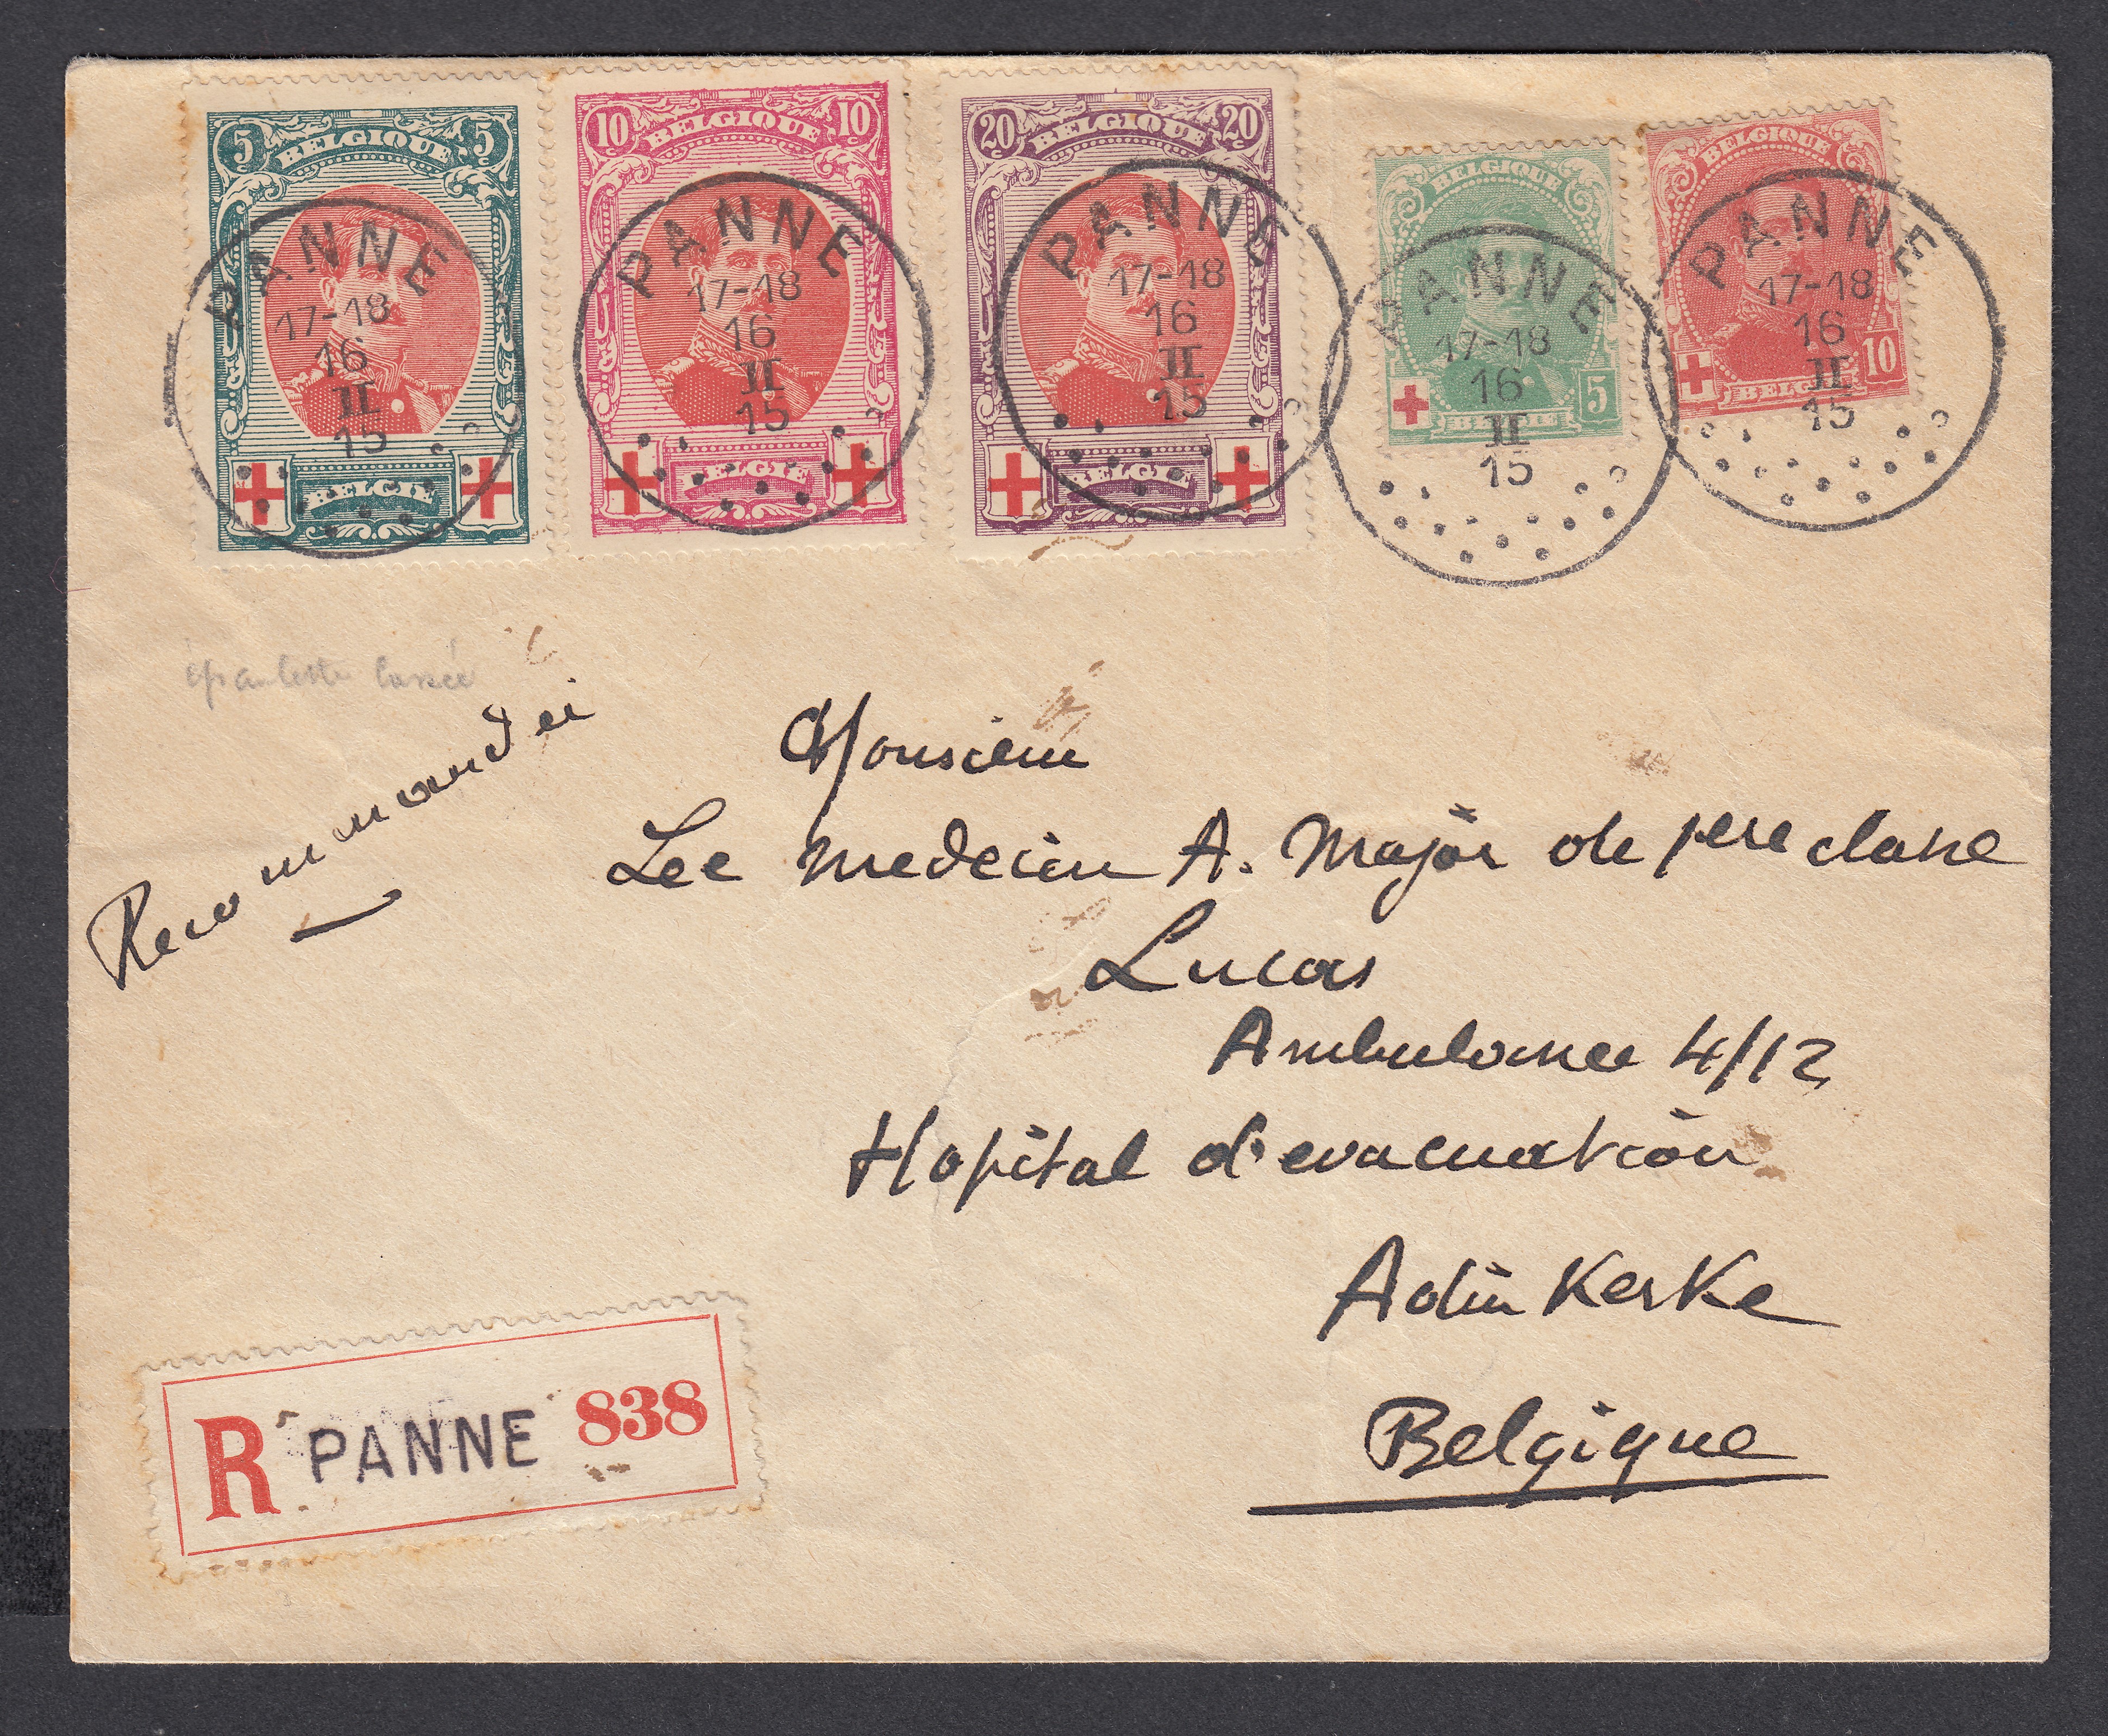 5 BELGIQUE 5
BELGIE
10 BELGIQUE 10
BELGIE
20 BELGIQUE 20
BELGIE
BELGIQUE
5
BELGIE
BELGIQUE
10
BELGIE
PANNE
17-18
16
II
15
PANNE
17-18
16
II
15
PANNE
17-18
16
II
15
PANNE
17-18
16
II
15
PANNE
17-18
16
II
15
épaulette cassée
Recommandei
Monsieur
Lee medecin A. Major de 1ere classe
Lucas
Ambulance 4/12
Hopital d'evacuation
Adinkerke
Belgique
R PANNE 838